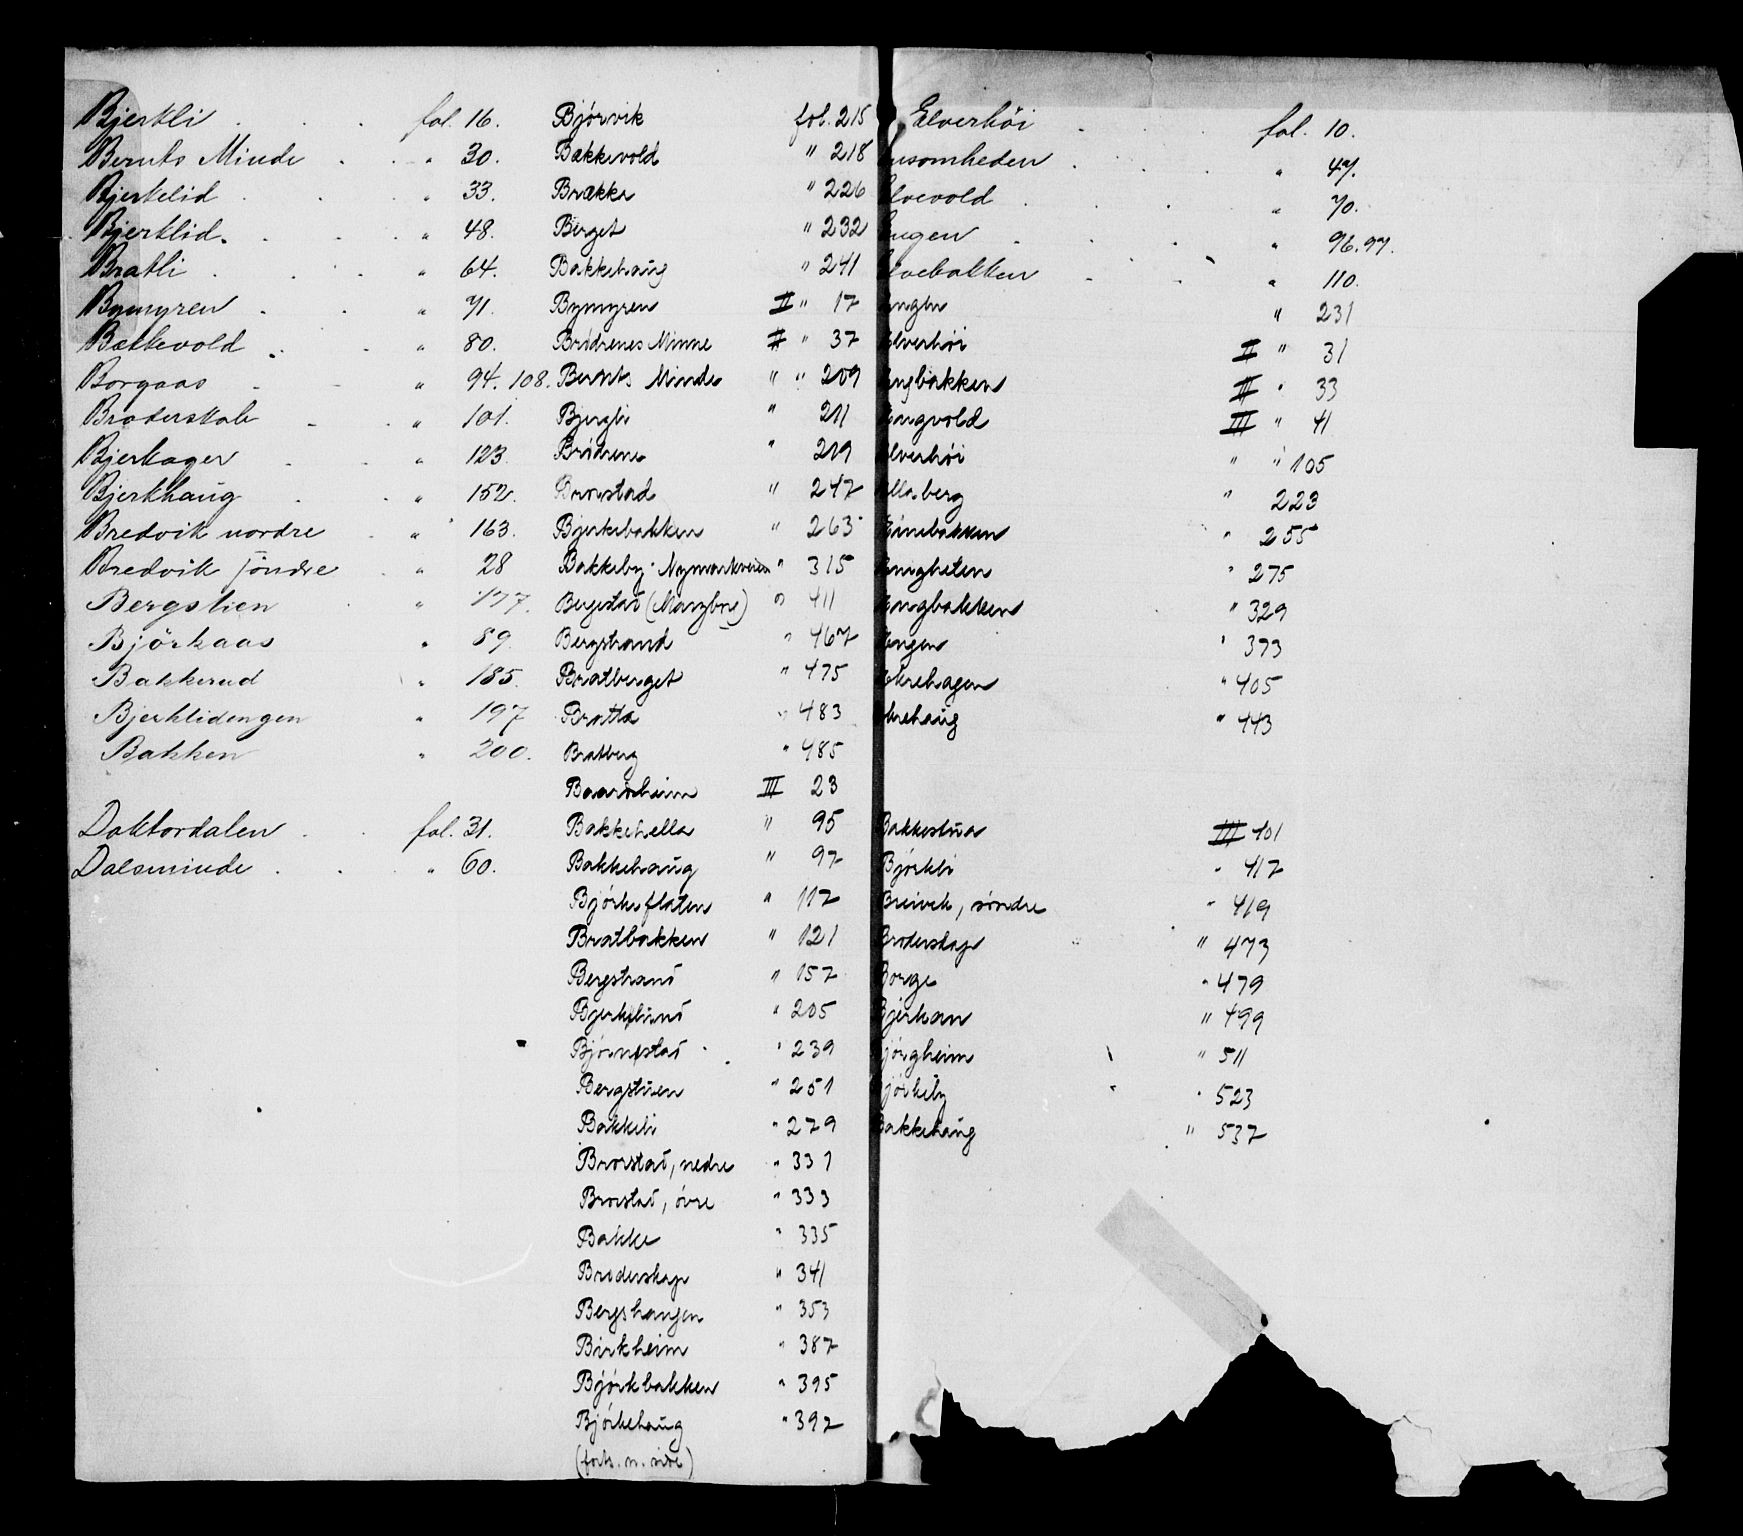 Bjerkli . . . fol. 16.
Bernts Minde . . " 30.
Bjerkelid . . " 33.
Bjerklid . . . " 48.
Bratli . . . " 64.
Bymyren . . " 71.
Bækkevold . . " 80.
Borgaas . . " 94. 108.
Broderskab . . " 101.
Bjerkager . . " 123.
Bjerkhaug . . " 152.
Bredvik nordre . " 163.
Bredvik söndre . " 28
Bergstien . " 177.
Björkaas . 89.
Bakkerud " 185.
Bjerklidengen " 197
Bakken " 200.
Doktordalen . . fol. 31.
Dalsminde . . . " 60.
Bjørvik fol. 215
Bækkevold " 218
Brække " 226
Berget " 232
Bakkehaug " 241
Bymyren II " 17
Brødrenes Minne II " 37
Bernts Minde " " 209
Bjergli " 211
Brødrene " 219
Brorstad " 247
Bjerkebakken " 263
Bakkeby - Nymarkveien " 315
Bergestad " 411
Bergstrand " 467
Bratberget " 475
Bratta " 483
Bratberg " 485
Baarsheim III 23
Bakkehella " 95
Bakkehaug " 97
Bjørkeflaten " 117
Bratbakken " 121
Bergstrand " 157
Bjerkelund " 205
Bjørnestad " 239
Bergstuen " 251
Bakkeli " 279
Brorstad, nedre " 331
Brorstad, øvre " 333
Bakke " 335
Broderskap " 341
Bergshaugen " 353
Birkheim " 387
Bjørkbakken " 395
Bjørkehaug " 397
(forts. n. side)
Elverhöi . . . fol. 10.
nsomheden . . . " 47.
lvevold . . . " 70.
ngen . . . " 96. 97.
lvebakken . . . " 110.
ngen " 231
lverhöi II " 31
ngbakken II " 33
ngvold III " 41
lverhöi " " 105
lla berg " 223
inebakken " 255
nigheten " 275
ngbakken " 329
ngen " 373
krehagen " 405
krehaug " 443
Bakkestua III 401
Bjørkli " 417
Breivik, søndre " 419
Broderskap " 473
Borge " 479
Bjerkan " 499
jørgheim " 511
jørkeby " 523
Bakkehaug " 537